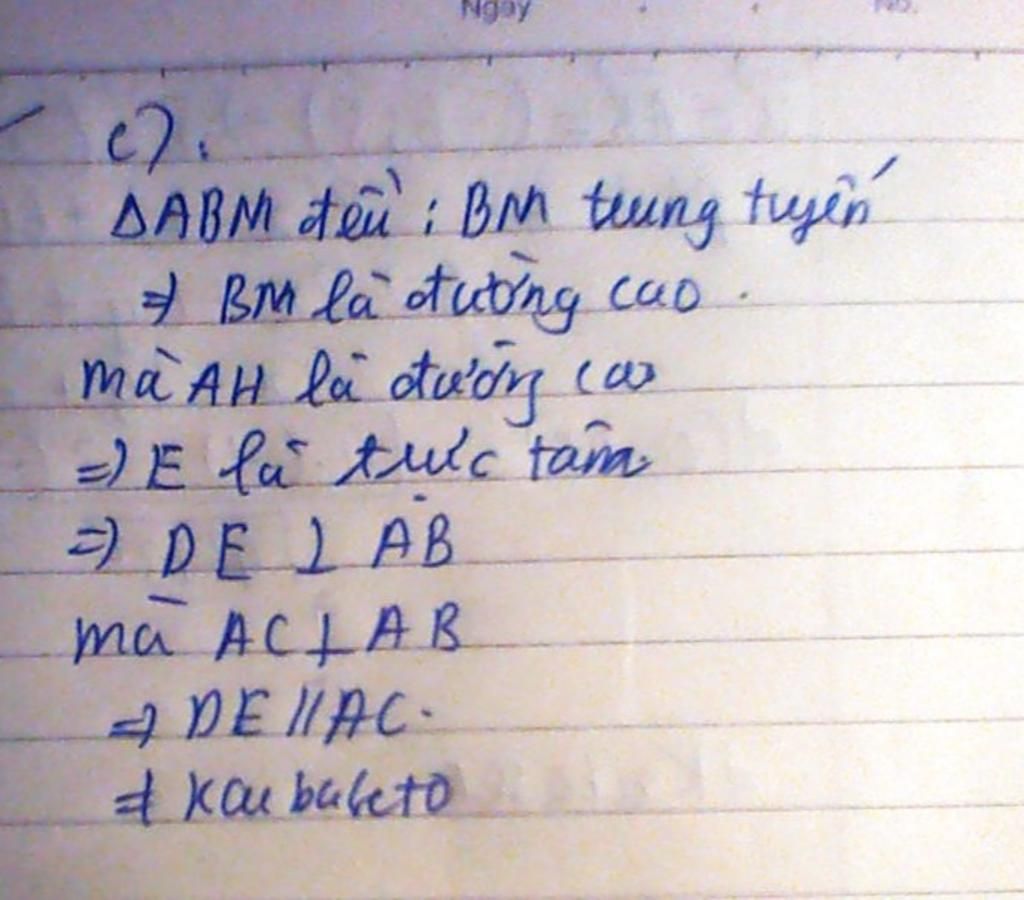 Ngày No.
c).
ΔABM đều : BM trung tuyến
=> BM là đường cao.
mà AH là đường cao
=> E là trực tâm
=> DE ⊥ AB
mà AC ⊥ AB
=> DE // AC.
=>